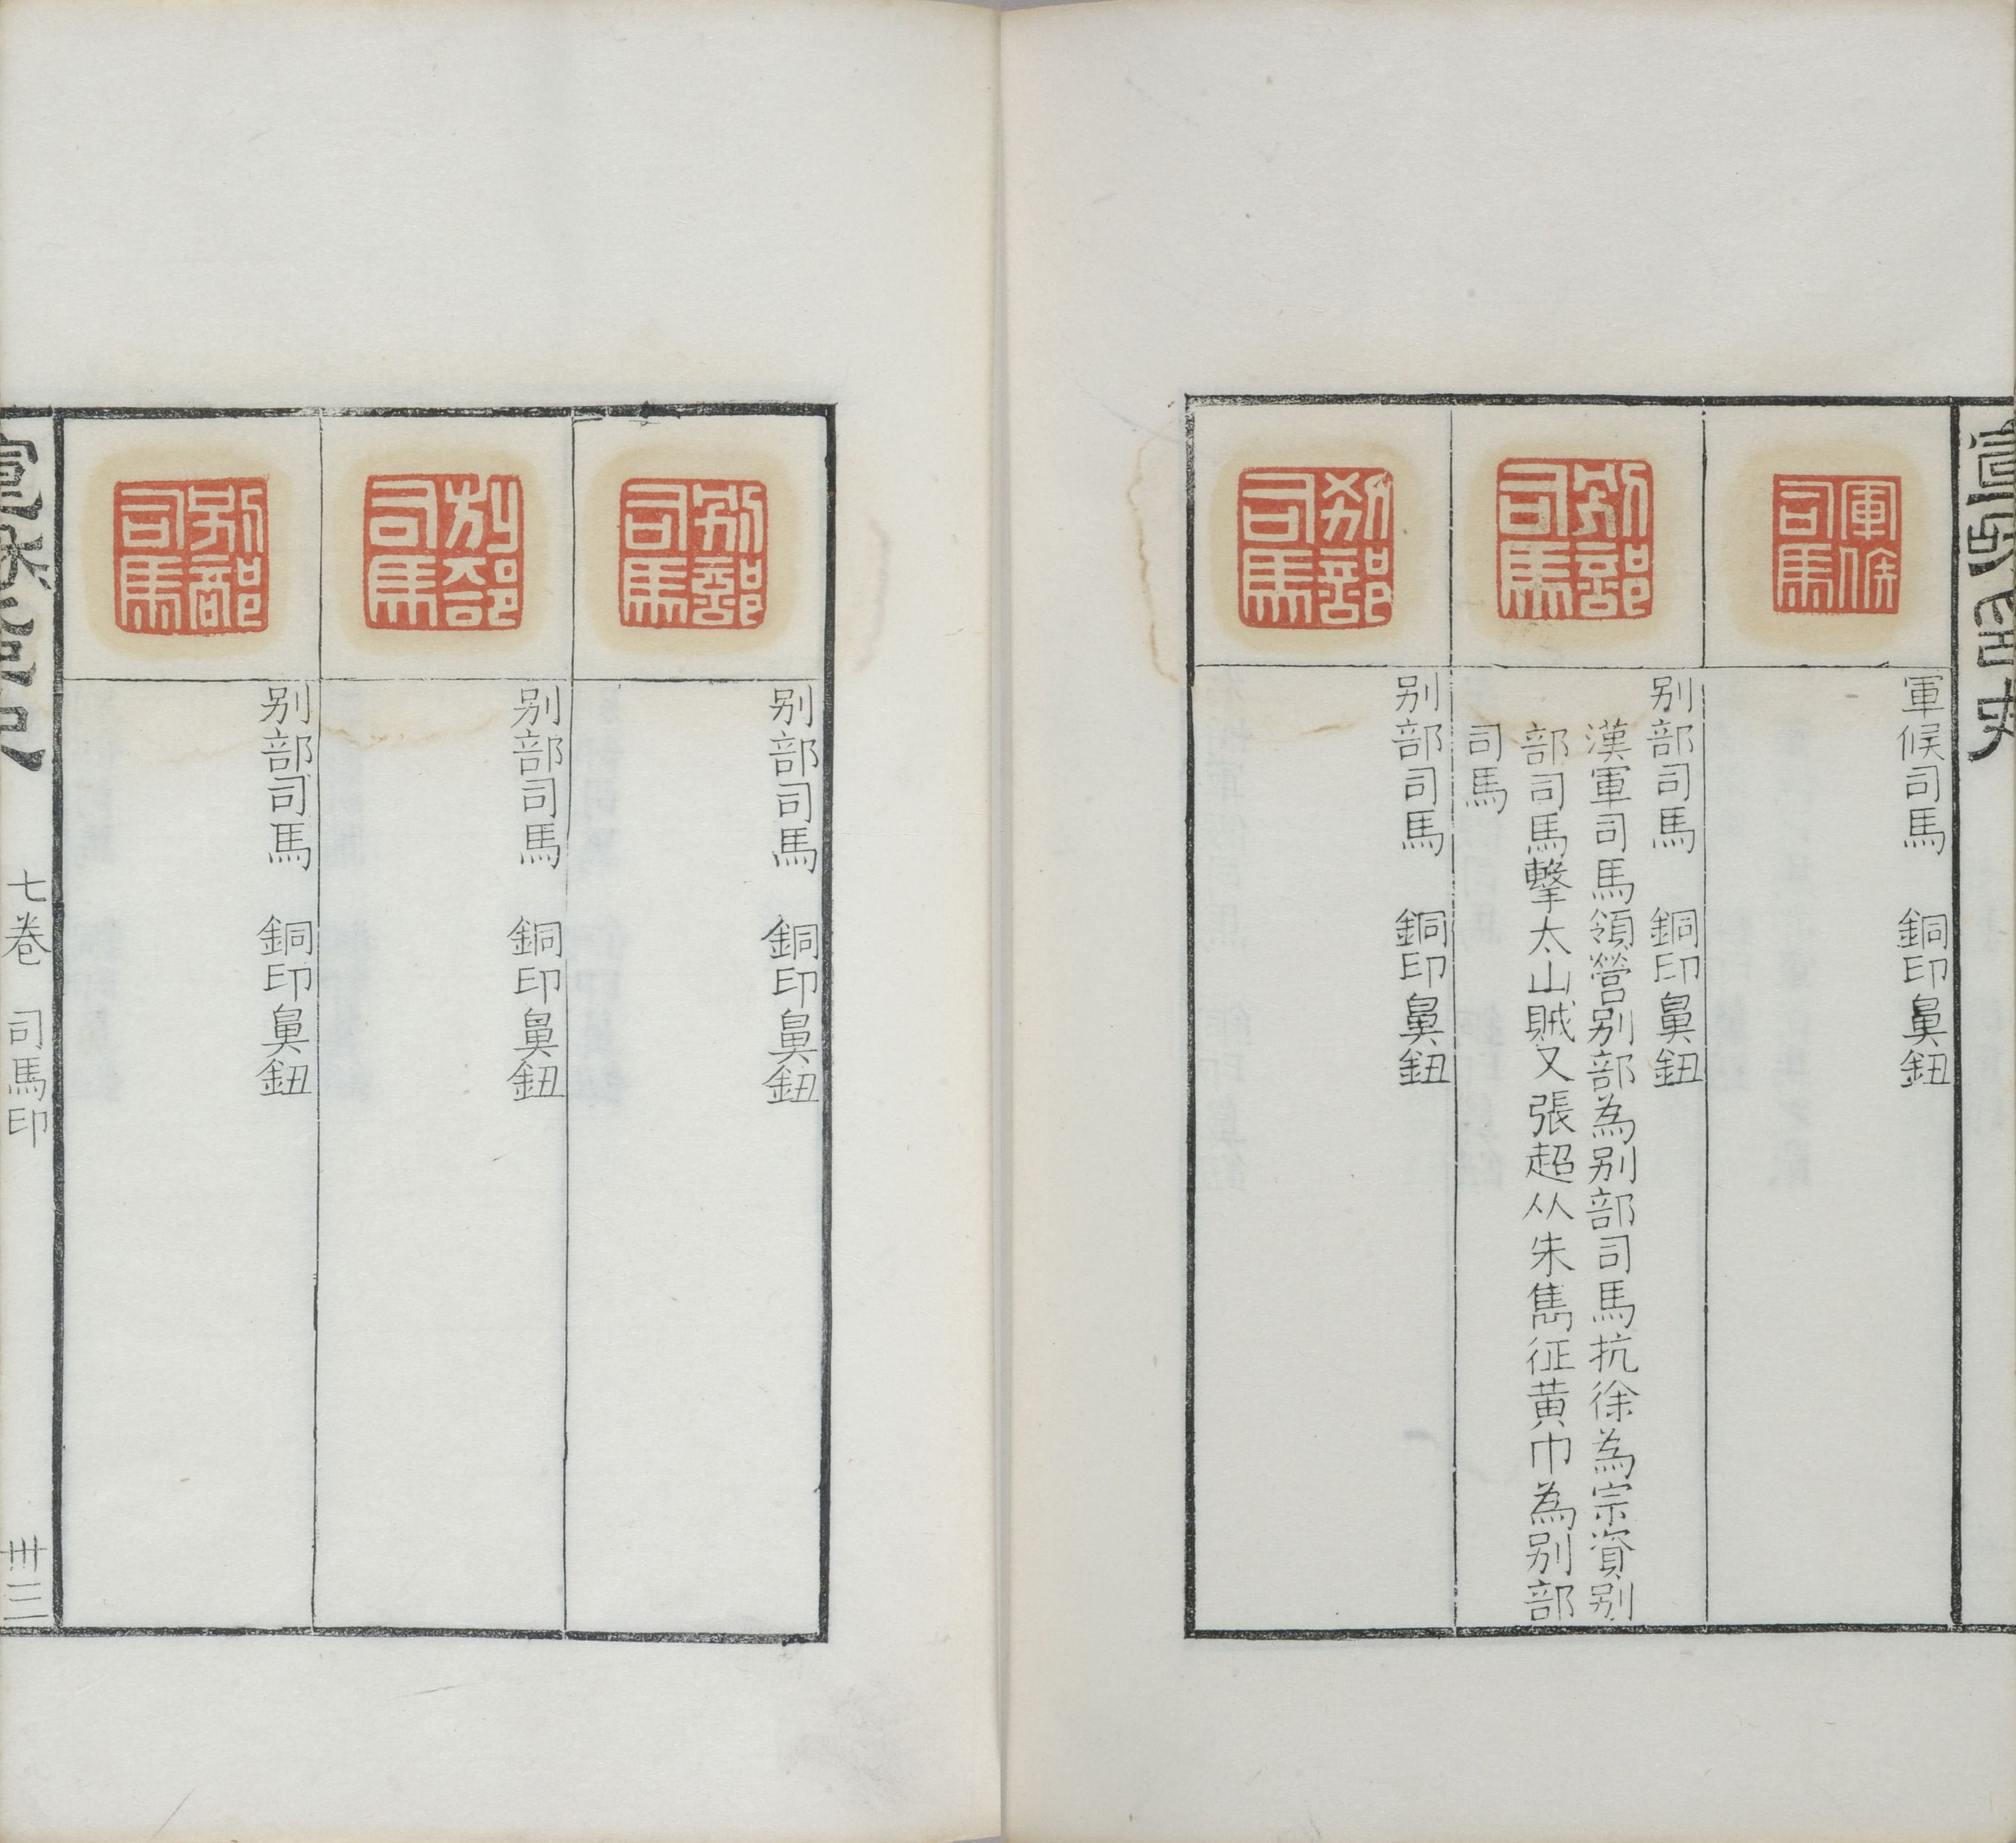 軍候司馬
軍候司馬 銅印鼻鈕
别部司馬
别部司馬 銅印鼻鈕
漢軍司馬領營别部為别部司馬抗徐為宗資别
部司馬擊太山賊又張超从朱雋征黄巾為别部
司馬
别部司馬
别部司馬 銅印鼻鈕
别部司馬
别部司馬 銅印鼻鈕
别部司馬
别部司馬 銅印鼻鈕
别部司馬
别部司馬 銅印鼻鈕
七卷 司馬印 卅三